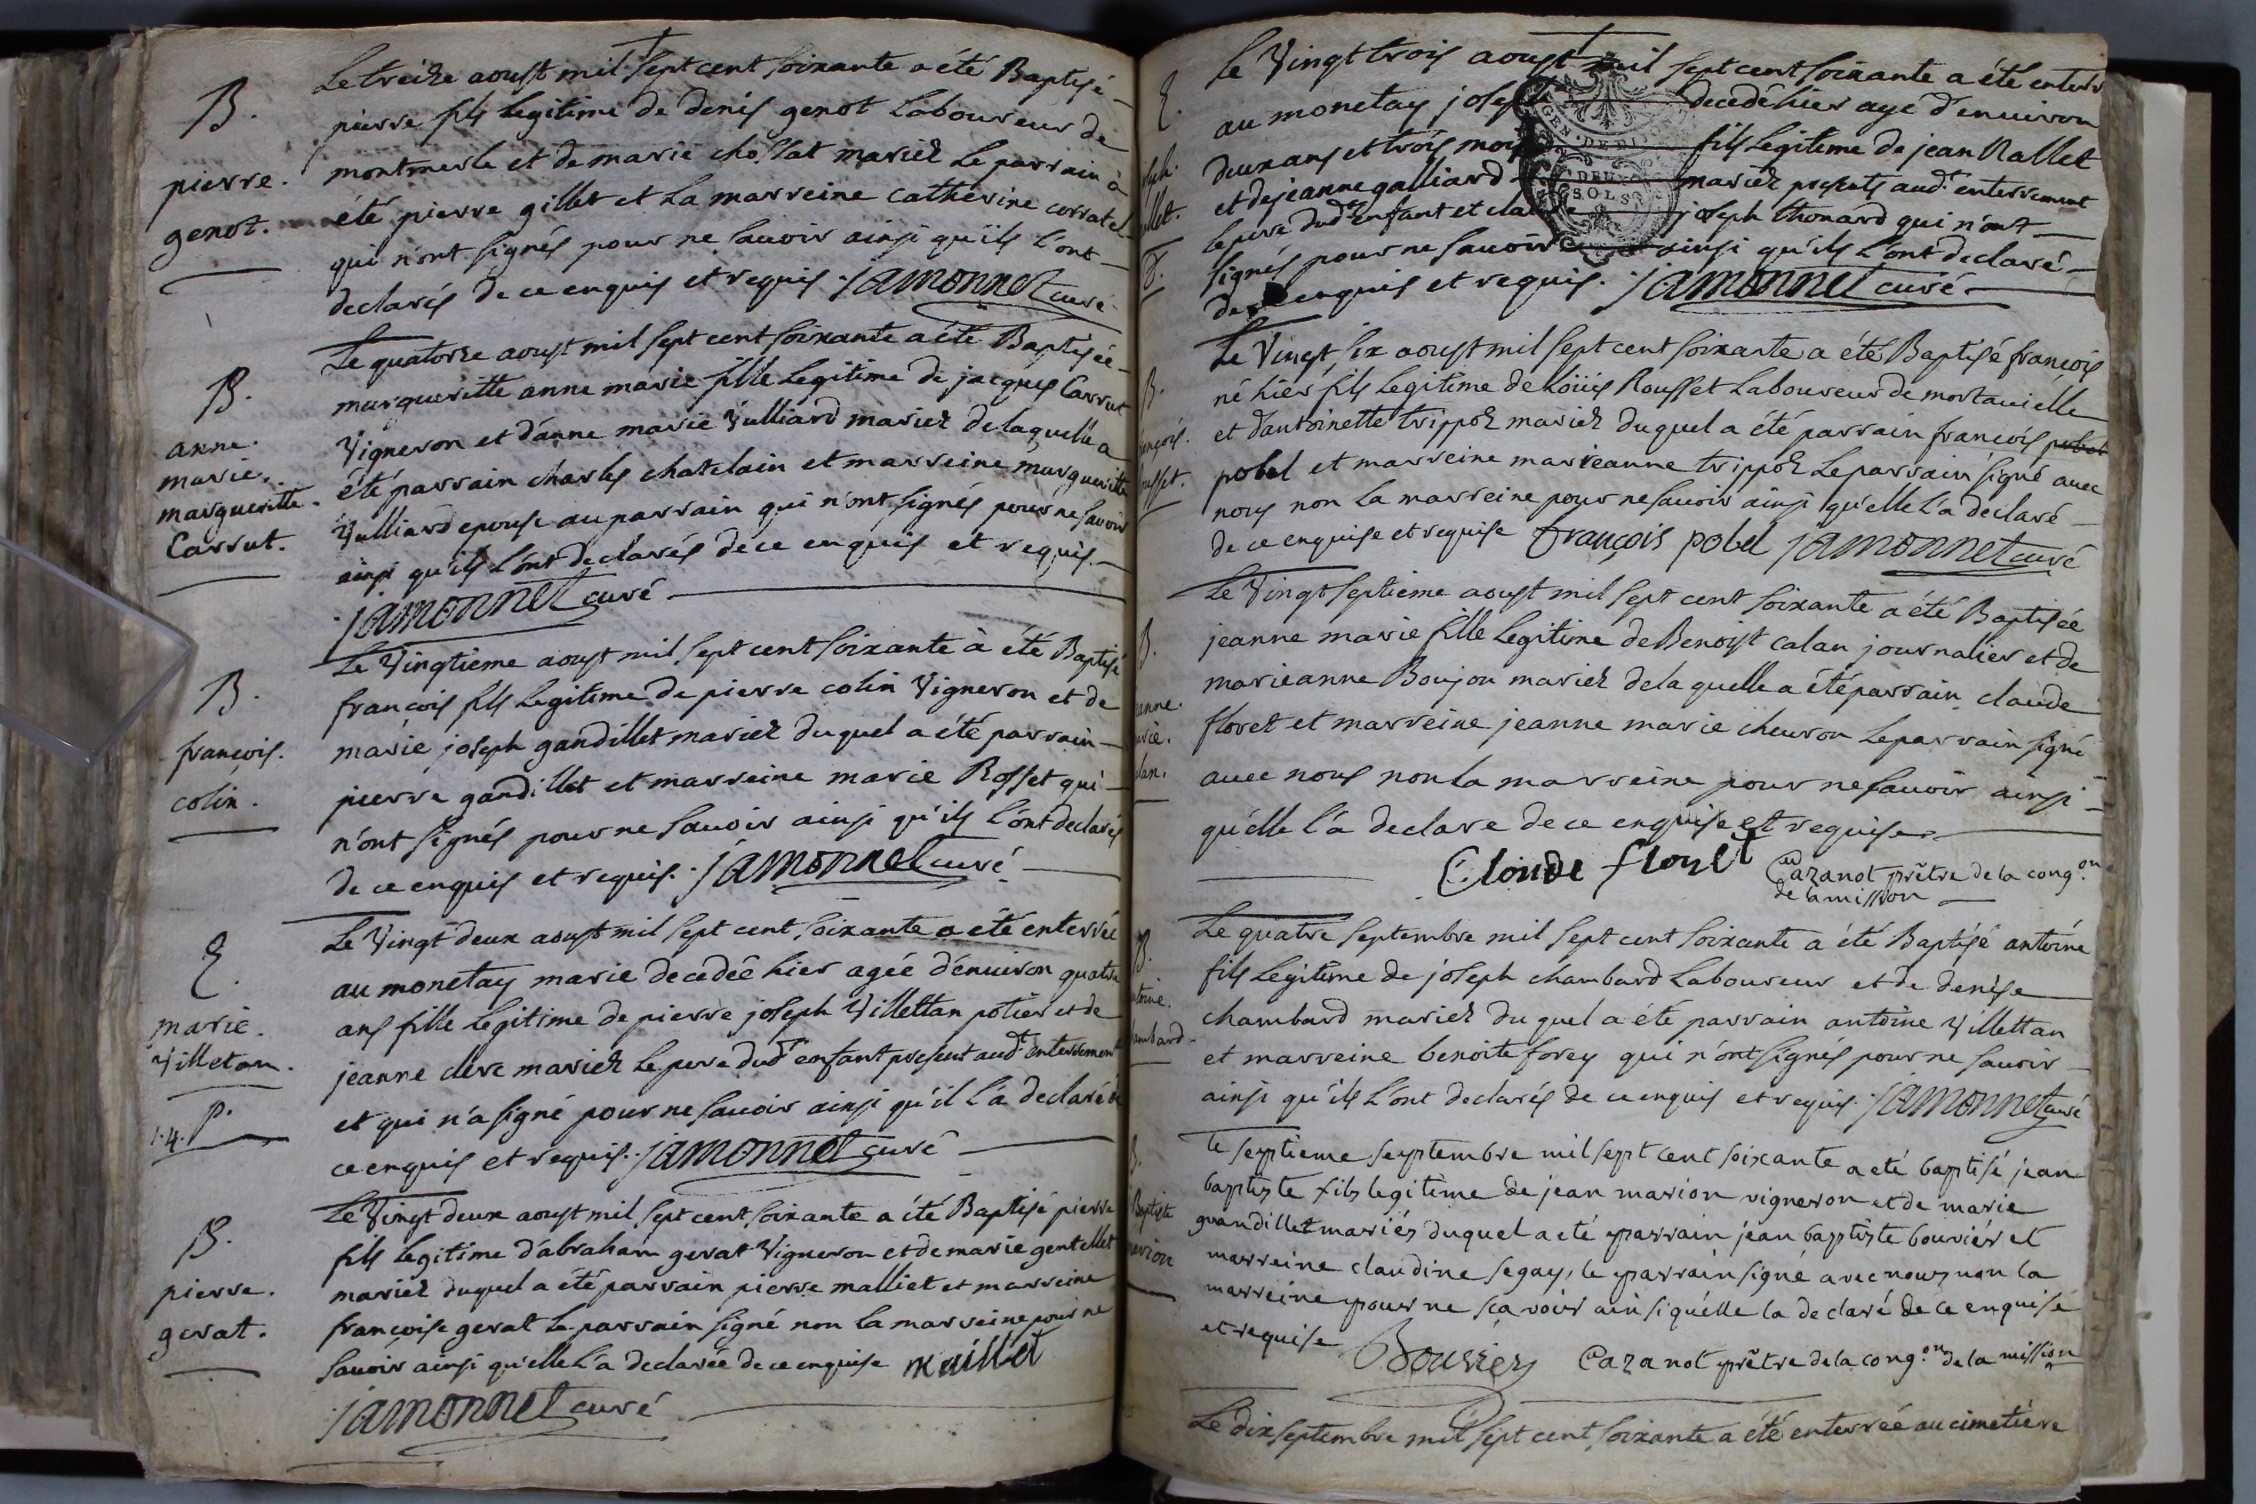 B.
pierre.
genot.
Le treize aoust mil sept cent soixante a été Baptisé
pierre fils legitime de denis genot Laboureur de
montmerle et de marie chossat mariez Le parrain à
été pierre gillet et La marreine catherine corratel
qui n'ont signés pour ne savoir ainsi qu'ils L'ont
declarés de ce enquis et requis. jamonnet curé
B.
anne.
marie.
margueritte.
Carrut.
Le quatorze aoust mil sept cent soixante a été Baptisée
margueritte anne marie fille Legitime de jacques Carrut
Vigneron et d'anne marie Vulliard mariez de laquelle a
été parrain charles chatelain et marreine margueritte
Vulliard epouse au parrain qui n'ont signés pour ne savoir
ainsi qu'ils L'ont declarés de ce enquis et requis.
jamonnet curé
B.
francois.
colin.
Le Vingtieme aoust mil sept cent soixante à été Baptisé
francois fils Legitime de pierre colin Vigneron et de
marie joseph gandillet mariez duquel a été parrain
pierre gandillet et marreine marie Rosset qui
n'ont signés pour ne savoir ainsi qu'ils L'ont declarés
de ce enquis et requis. jamonnet curé
E.
marie.
Villetan.
P.
1.4.
Le Vingt deux aoust mil sept cent soixante a été enterrée
au monetay marie decedée hier agée d'enuiron quatre
ans fille Legitime de pierre joseph Villettan potier et de
jeanne clerc mariez Le pere dud enfant present aud.t enterrement
et qui n'a signé pour ne savoir ainsi qu'il L'a declaré de
ce enquis et requis. jamonnet curé
B.
pierre.
gerat.
Le Vingt deux aoust mil sept cent soixante a été Baptisé pierre
fils legitime d'abraham gerat Vigneron et de marie gentellet
mariez duquel a été parrain pierre malliet et marreine
françoise gerat Le parrain signé non La marreine pour ne
savoir ainsi qu'elle L'a declarée de ce enquise maillet
jamonnet curé
E.
seph.
allet.
Le Vingt trois aoust mil sept cent soixante a été enterré
au monetay joseph decedé hier agé d'enuiron
deux ans et trois mois fils Legitime de jean Rallet
et de jeanne galliard mariez presents aud.t enterrement
le pere dud enfant et claude joseph thonard qui n'ont
signés pour ne savoir ainsi qu'ils L'ont declaré
de ce enquis et requis. jamonnet curé
GEN. DE DI
DEUX
SOLS
B.
ançois.
usset.
Le Vingt six aoust mil sept cent soixante a été Baptisé françois
né hier fils Legitime de Loüis Rousset Laboureur de mortauielle
et d'antoinette trippoz mariez duquel a été parrain françois pobel
pobel et marreine marieanne trippoz Le parrain signé avec
nous non La marreine pour ne savoir ainsi qu'elle L'a declaré
de ce enquise et requise françois pobel jamonnet curé
B.
eanne.
arie.
alan.
Le Vingt septieme aoust mil sept cent soixante a été Baptisée
jeanne marie fille Legitime de Benoist calan journalier et de
marieanne Boujon mariez de la quelle a été parrain claude
floret et marreine jeanne marie cheuron Le parrain signé
avec nous non La marreine pour ne savoir ainsi
qu'elle L'a declare de ce enquise et requise
Cloude floret Cazanot prêtre de la cong.on
de la mission
B.
ntoine.
ambard.
Le quatre septembre mil sept cent soixante a été Baptisé antoine
fils Legitime de joseph chambard Laboureur et de denise
chambard mariez du quel a été parrain antoine Villettan
et marreine benoite forey qui n'ont signés pour ne savoir
ainsi qu'ils L'ont declarés de ce enquis et requis. jamonnet curé
B.
Baptiste
arion
le septieme septembre mil sept cent soixante a eté baptisé jean
baptiste fils legitime de jean marion vigneron et de marie
grandillet mariés duquel a eté parrain jean baptiste bouviér et
marreine claudine segay, le parrain signé avec nous non la
marreine pour ne sçavoir ainsi qu'elle la declaré de ce enquise
et requise Bouvier Cazanot prêtre de la cong.on de la mission
Le dix septembre mil sept cent soixante a été enterrée au cimetière